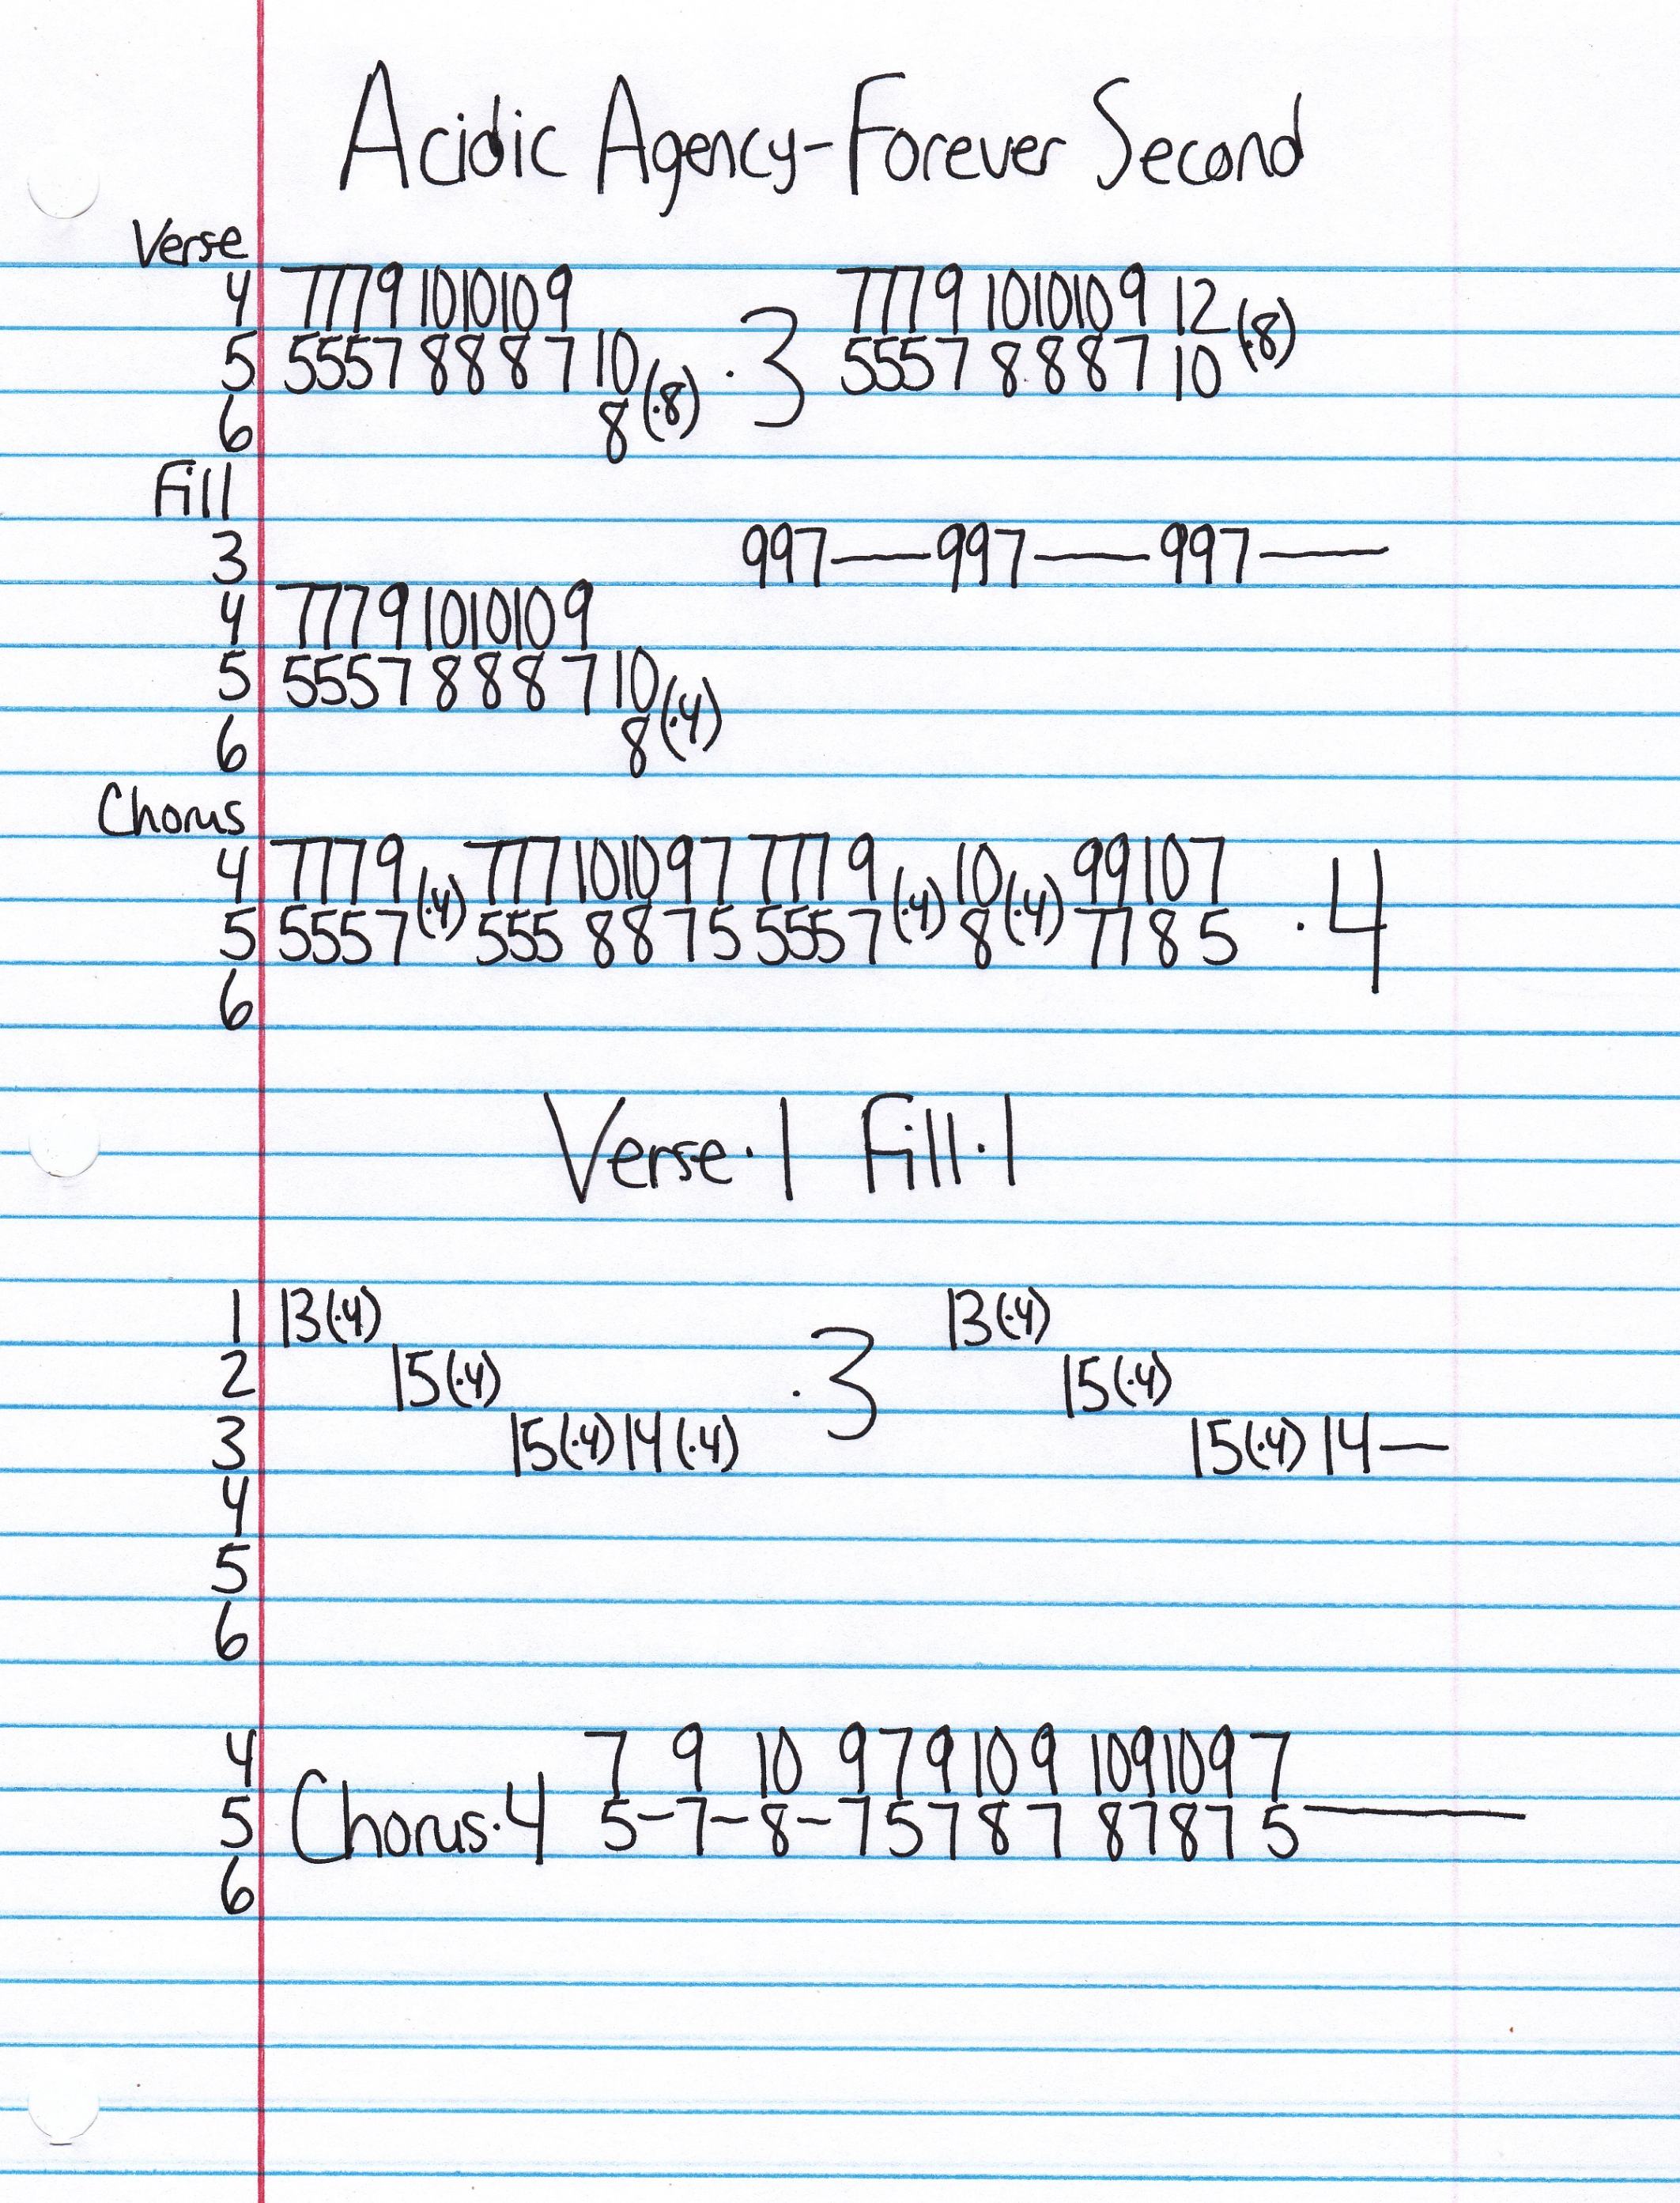 Acidic Agency-Forever Second
Verse
4 7779 1010109 7779 1010109 12
5 5557 888 7 10 (·8) ·3 5557 8887 10 (·8)
6 8
Fill
3 997—997—997—
4 7779 1010109
5 5557 888 7 10 (·4)
6 8
Chorus
4 7779 (·4) 777 101097 7779 (·4) 10 (·4) 99107
5 5557 555 88 75 5557 8 7785 ·4
6
Verse·1 Fill·1
1 13(·4) 13(·4)
2 15(·4) ·3 15(·4)
3 15(·4)14(·4) 15(·4)14—
4
5
6
4 7 9 10 9 7 9 10 9 109109 7
5 Chorus·4 5-7-8-7578 7 8787 5—
6